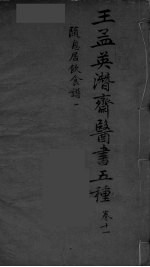 王孟英潛齋醫書五種 卷十一
隨息居飲食譜一